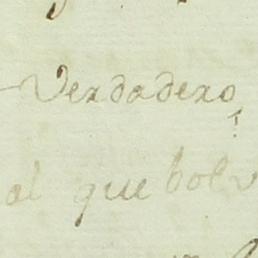 Verdadero
al que bolv